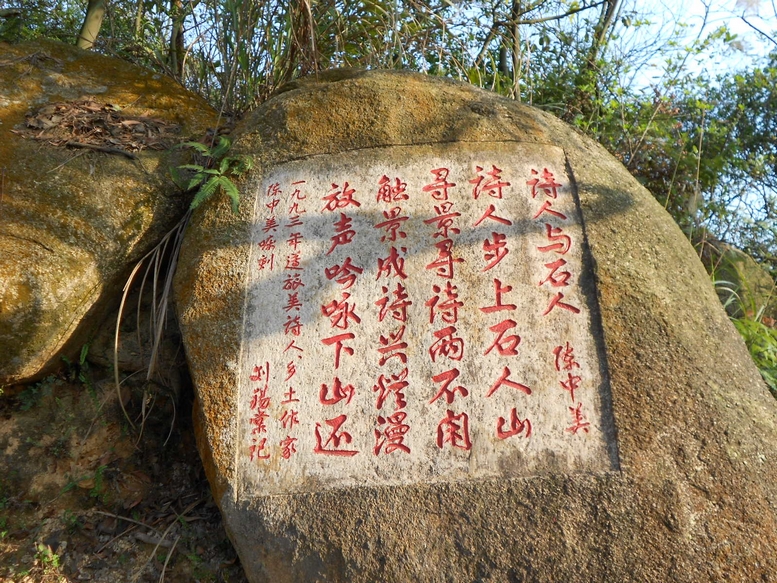 诗人与石人 陈中美
诗人步上石人山
寻景寻诗两不闲
触景成诗兴烂漫
放声吟咏下山还
一九九三年 旅美诗人、乡土作家
陈中美 刘 记